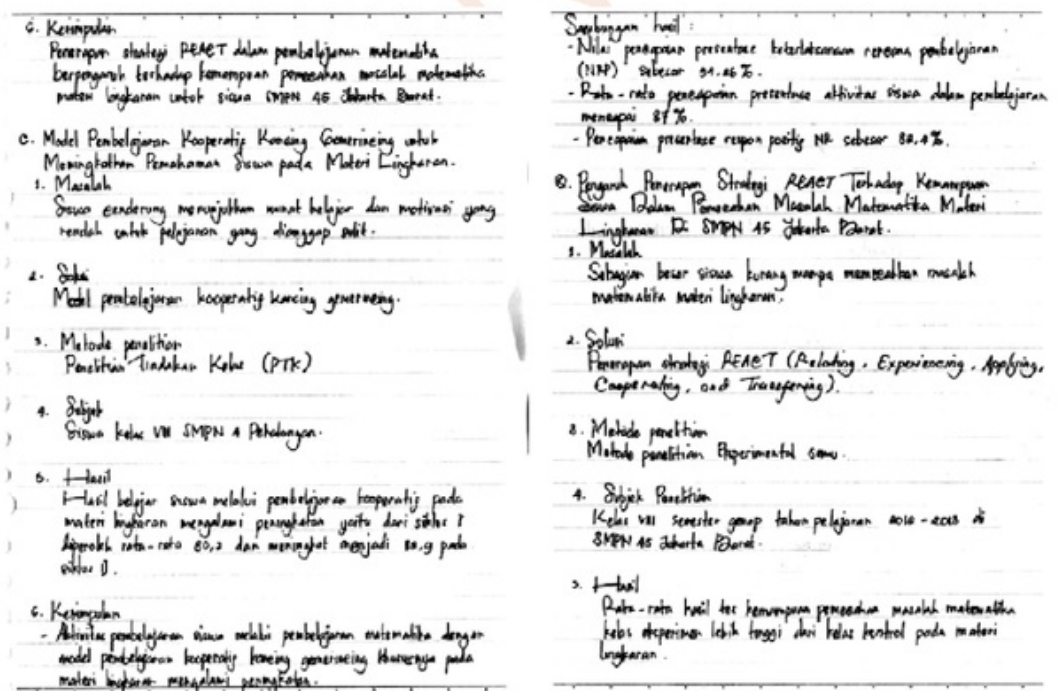 6. Kesimpulan
Penerapan strategi REACT dalam pembelajaran matematika
berpengaruh terhadap kemampuan pemecahan masalah matematika
materi lingkaran untuk siswa SMPN 45 Jakarta Barat.
C. Model Pembelajaran Kooperatif Kancing Gemerincing untuk
Meningkatkan Pemahaman Siswa pada Materi Lingkaran.
1. Masalah
Siswa cenderung menunjukkan minat belajar dan motivasi yang
rendah untuk pelajaran yang dianggap sulit.
2. Solusi
Model pembelajaran kooperatif kancing gemerincing.
3. Metode penelitian
Penelitian Tindakan Kelas (PTK)
4. Subjek
Siswa kelas VIII SMPN 4 Pekalongan.
5. Hasil
Hasil belajar siswa melalui pembelajaran kooperatif pada
materi lingkaran mengalami peningkatan yaitu dari siklus I
diperoleh rata-rata 80,2 dan meningkat menjadi pada
siklus
6. Kesimpulan
- Aktivitas pembelajaran siswa melalui pembelajaran matematika dengan
model pembelajaran kooperatif kancing gemerincing khususnya pada
materi lingkaran mengalami peningkatan.
Sambungan hasil :
- Nilai pencapaian presentase keterlaksanaan rencana pembelajaran
(NRP) sebesar
- Rata-rata pencapaian presentase aktivitas siswa dalam pembelajaran
mencapai 87%.
- Pencapaian presentase respon positif NR sebesar 82.4%.
Pengaruh Penerapan Strategi REACT Terhadap Kemampuan
Siswa Dalam Pemecahan Masalah Matematika Materi
Lingkaran Di SMPN 45 Jakarta Barat.
1. Masalah
Sebagian besar siswa kurang mampu memecahkan masalah
matematika materi lingkaran.
2. Solusi
Penerapan strategi REACT (Relating, Experiencing, Applying,
Cooperating, and Transfering).
3. Metode penelitian
Metode penelitian Eksperimental semu.
4. Subjek Penelitian
Kelas VIII semester genap tahun pelajaran di
SMPN 45 Jakarta Barat.
5. Hasil
Rata-rata hasil tes kemampuan pemecahan masalah matematika
kelas eksperimen lebih tinggi dari kelas kontrol pada materi
lingkaran.